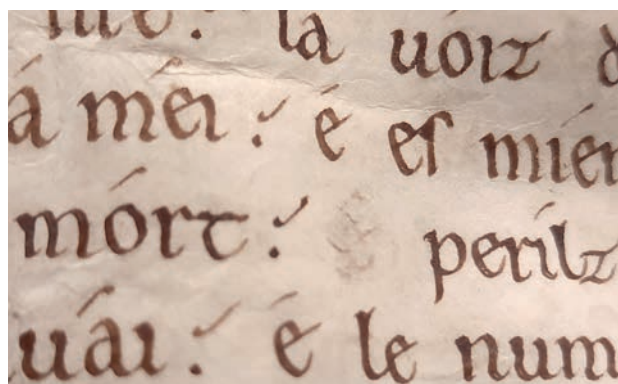 la uóiz
á méi : é es mien
mórt : perilz
uái : é le num